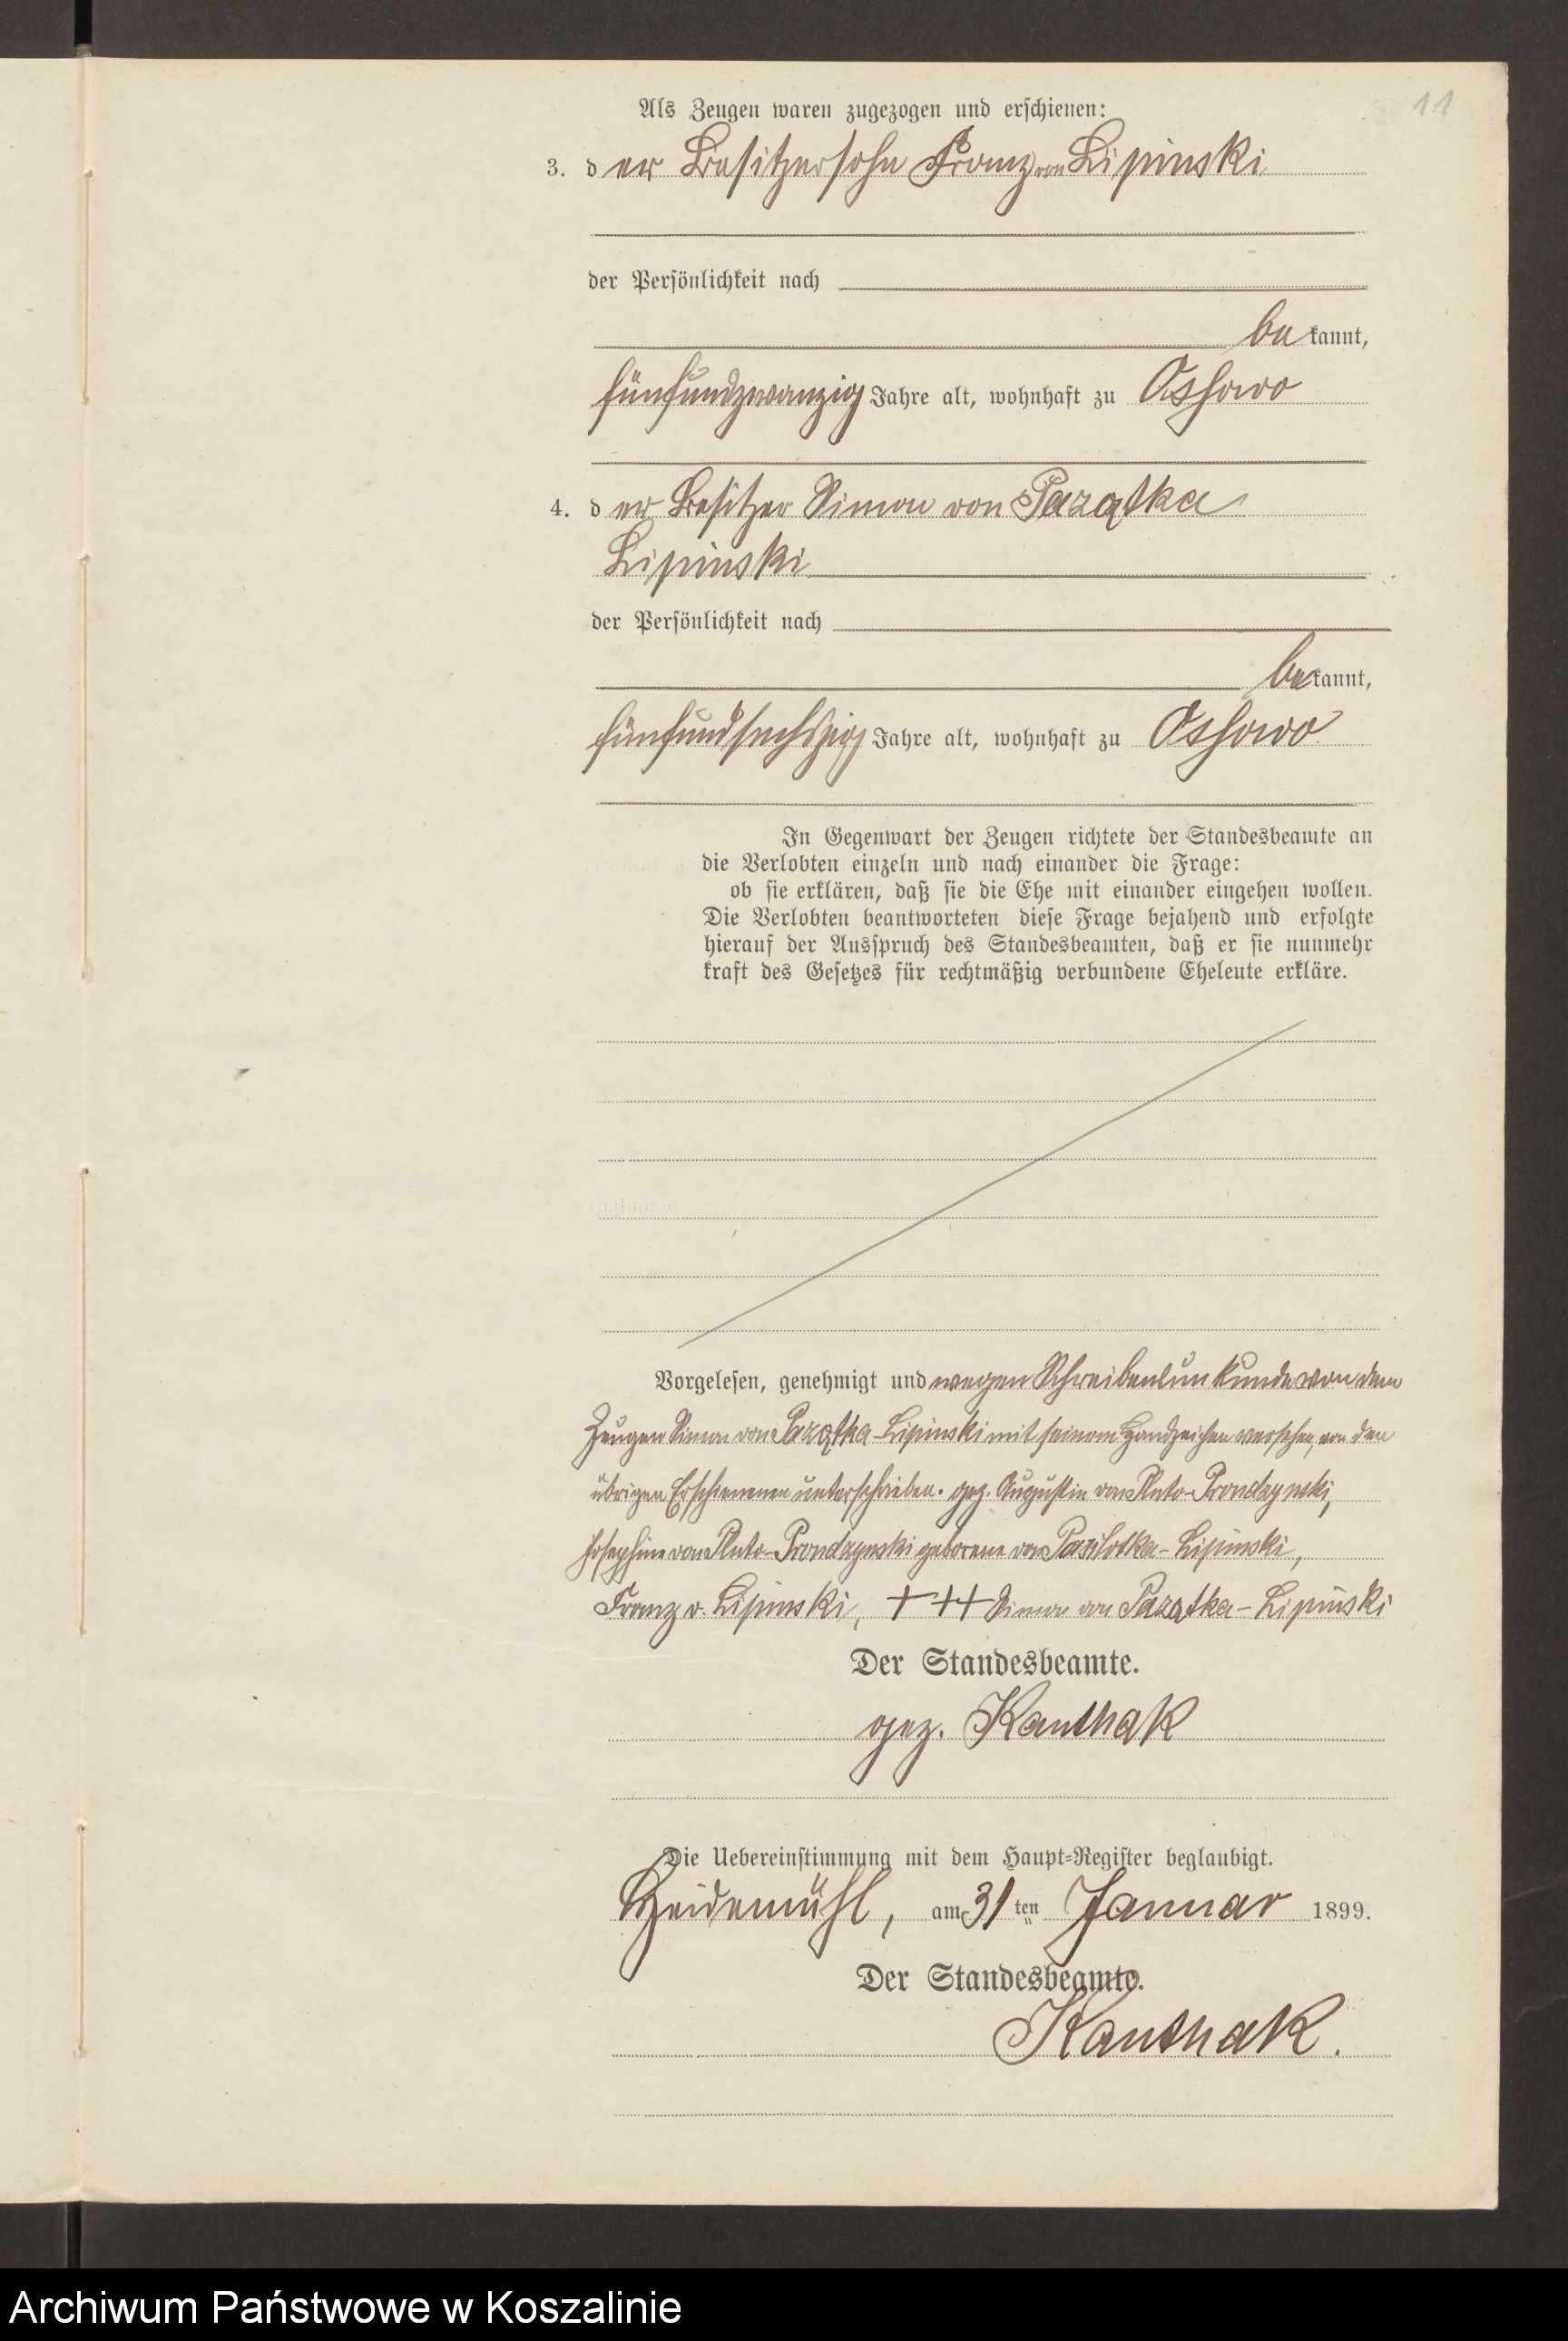 11
Als Zeugen waren zugezogen und erschienen:
3. der Besitzersohn Franz von Lipinski
der Persönlichkeit nach
bekannt,
fünfundzwanzig Jahre alt, wohnhaft zu Ossowo
4. der Besitzer Simon von Pazątka
Lipinski
der Persönlichkeit nach
bekannt,
fünfundsechszig Jahre alt, wohnhaft zu Ossowo
In Gegenwart der Zeugen richtete der Standesbeamte an
die Verlobten einzeln und nach einander die Frage:
ob sie erklären, daß sie die Ehe mit einander eingehen wollen.
Die Verlobten beantworteten diese Frage bejahend und erfolgte
hierauf der Ausspruch des Standesbeamten, daß er sie nunmehr
kraft des Gesetzes für rechtmäßig verbundene Eheleute erkläre.
Vorgelesen, genehmigt und wegen Schreibensunkunde von dem
Zeugen Simon von Pazątka-Lipinski mit seinem Handzeichen versehen, von den
übrigen Erschienenen unterschrieben. gez. Augustin von Pluto-Prondzynski,
Josephine von Pluto-Prondzynski geborene von Lipinski,
Franz v. Lipinski, +++ Simon von Pazątka-Lipinski
Der Standesbeamte.
gez. Kanthak
Die Uebereinstimmung mit dem Haupt-Register beglaubigt.
Heidemühl, am 31ten Januar 1899.
Der Standesbeamte.
Kanthak.
Archiwum Państwowe w Koszalinie